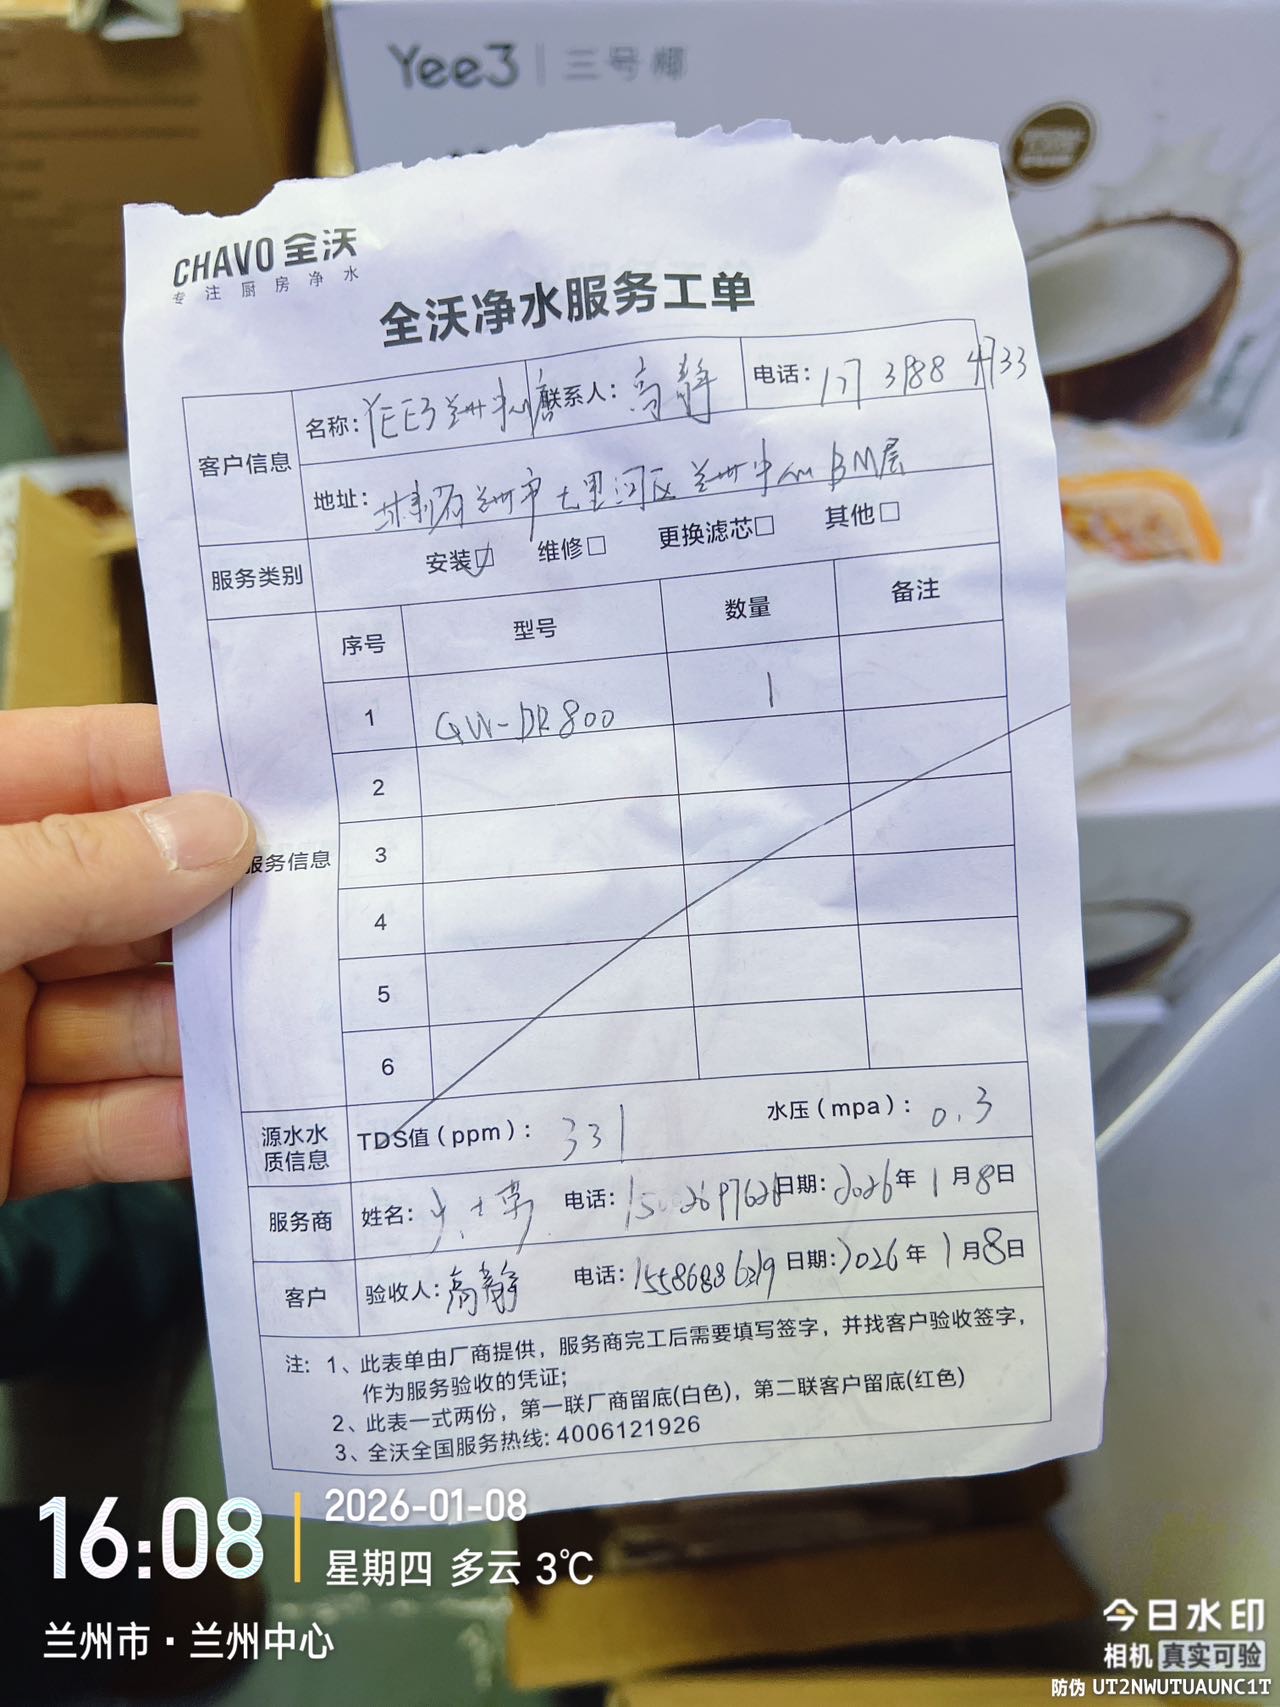 Yee3 三号椰
CHAVO 全沃
专注厨房净水
全沃净水服务工单
客户信息
名称: YEE3兰州中心店 联系人: 高静 电话: 173 8988 4733
地址: 甘肃省兰州市七里河区兰州中心BM层
服务类别 安装☑ 维修□ 更换滤芯□ 其他□
服务信息
序号 型号 数量 备注
1 GW-DR800 1
2
3
4
5
6
源水水质信息 TDS值(ppm): 331 水压(mpa): 0.3
服务商 姓名: 电话: 日期: 2026年1月8日
客户 验收人: 高静 电话: 日期: 2026年1月8日
注: 1、此表单由厂商提供，服务商完工后需要填写签字，并找客户验收签字，
作为服务验收的凭证;
2、此表一式两份，第一联厂商留底(白色)，第二联客户留底(红色)
3、全沃全国服务热线: 4006121926
16:08
2026-01-08
星期四 多云 3℃
兰州市·兰州中心
今日水印
相机 真实可验
防伪 UT2NWUTUAUNC1T